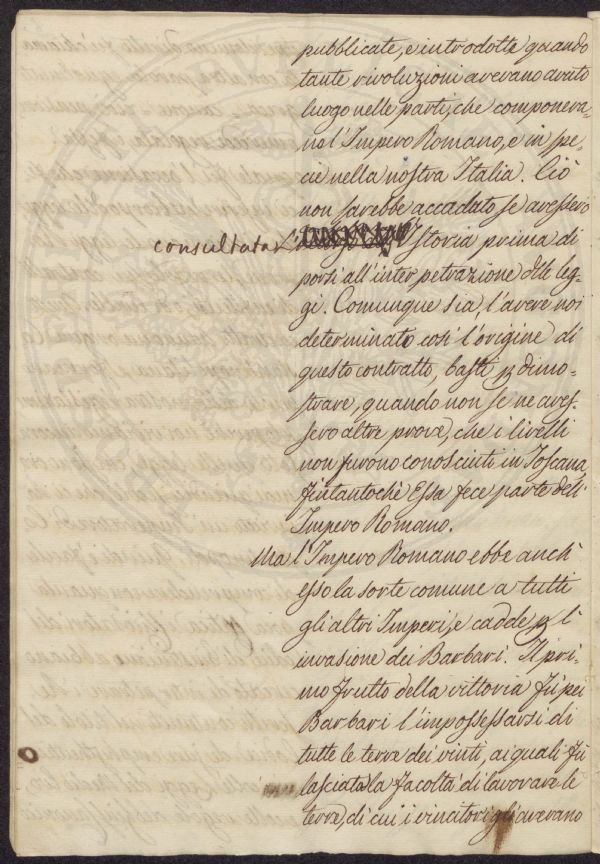 pubblicate, e introdotte quando
tante rivoluzioni avevano avuto
luogo nelle parti, che componeva-
no l'Impero Romano, e in spe-
cie nella nostra Italia. Ciò
non sarebbe accaduto se avessero
consultata l'Istoria prima di
porsi all'interpetrazione delle leg-
gi. Comunque sia, l'avere noi
determinato così l'origine di
questo contratto, basti p dimo-
strare, quando non se ne aves-
sero altre prove, che i livelli
non furono conosciuti in Toscana,
fintantochè Essa fece parte dell'
Impero Romano.
Ma l'Impero Romano ebbe anch'
esso la sorte comune a tutti
gli altri Imperi, e cadde p l'
invasione dei Barbari. Il pri-
mo frutto della vittoria fù pei
Barbari l'impossessarsi di
tutte le terre dei vinti, ai quali fù
lasciata la facoltà di lavorare le
terre, di cui i vincitori gli avevano